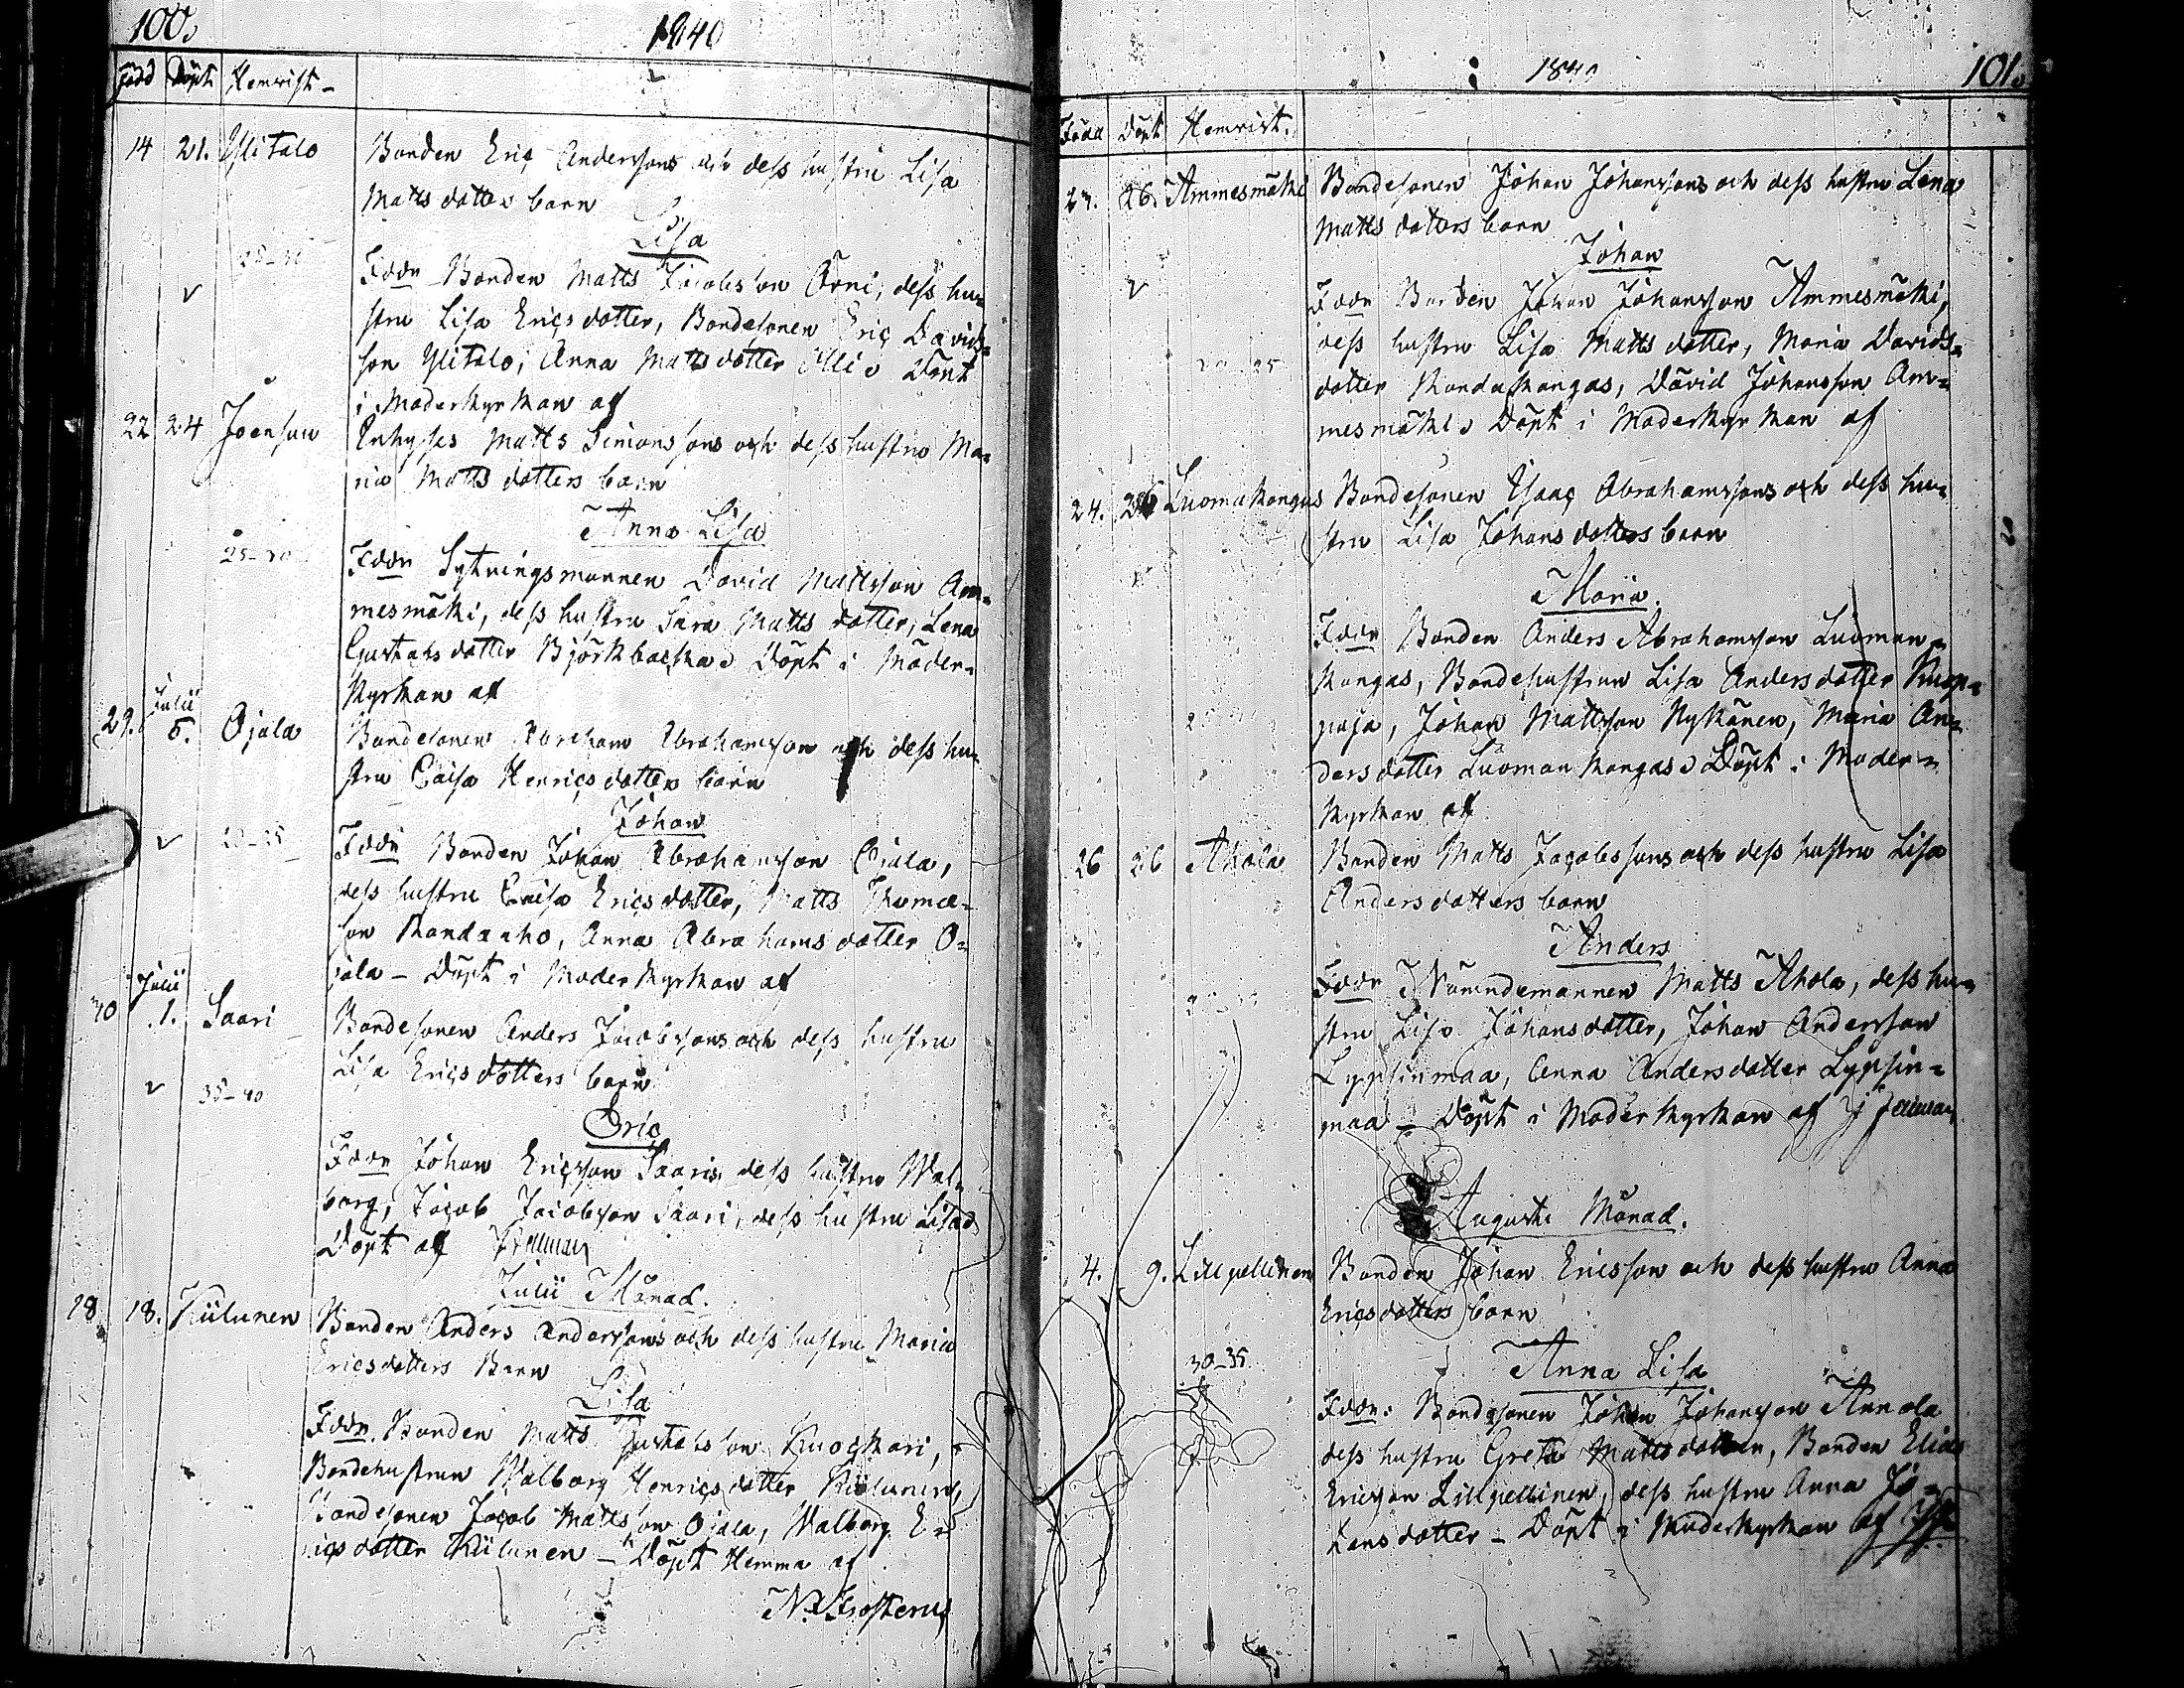 100.
1840
Född Döpt Hemvist
14 21. Ylitalo Bonden Eric Anderssons och dess hustru Lisa
Matts dotters barn
Lisa
25-30
Fddr Bonden Matts Jacobsson Örni, dess hu=
stru Lisa Erics dotter, Bondesonen Eric Davids=
son Ylitalo, Anna Matts dotter Döpt
i Moderkyrkan af
22 24 Joensuu Inhyses Matts Simonssons och dess hustru Ma=
ria Matts dotters barn
Anna Lisa
25-30
Fddr Sytningsmannen David Mattsson Am=
mesmäki, dess hustru Sara Matts dotter, Lena
Gustafs dotter Björkbacka Döpt i Moder=
kyrkan af
29. Julii 5. Ojala Bondesonen Abraham Abrahamsson och dess hu=
stru Caisa Henrics dotters barn
Johan
Fddr Bonden Johan Abrahamsson Ojala,
dess hustru Caisa Erics dotter, Matts Thomæ=
son Kandaaho, Anna Abrahams dotter O=
jala - Döpt i Moderkyrkan af
30 Julii 1. Saari Bondesonen Anders Jacobssons och dess hustru
Lisa Erics dotters barn
35-40
Eric
Fddr Johan Ericsson Saari, dess hustru Wal=
borg, Jacob Jacobsson Saari, dess hustru Lisa
Döpt af
Julii Månad.
18 18. Kiilunen Bonden Anders Anderssons och dess hustru Maria
Ericsdotters Barn
Lisa
Fddr. Bonden Matts Gustafsson Kuoskari,
Bondehustrun Walborg Henrics dotter Kiilunen,
Bondesonen Jacob Mattsson Ojala, Walborg E=
rics dotter Kiilunen - Döpt Hemma af
N. Frosterus
1840
101.
Född Döpt Hemvist.
26. Ammesmäki Bondesonen Johan Johanssons och dess hustru Lena
Matts dotters barn
Johan
Fddr Bonden Johan Johansson Ammesmäki,
dess hustru Lisa Matts dotter, Maria Davids=
dotter Kandakangas, David Johansson Am=
mesmäki Döpt i Moderkyrkan af
24. 26 Luomakangas Bondesonen Isaac Abrahamssons och dess hu=
stru Lisa Johans dotters barn
Maria.
Fddr Bonden Anders Abrahamsson Luoman=
kangas, Bondehustrun Lisa Anders dotter
Johan Mattsson Nykänen, Maria An=
ders dotter Luomankangas Döpt i Moder=
kyrkan af
26 26 Ahola Bonden Matts Jacobssons och dess hustru Lisa
Anders dotters barn
Anders
Fddr Nämndemannen Matts Ahola, dess hu=
stru Lisa Johansdotter, Johan Andersson
Lypsinmaa, Anna Anders dotter Lypsin=
maa - Döpt i Moderkyrkan af
Augusti Månad.
4. 9. Lillpellinen Bonden Johan Ericsson och dess hustru Anna
Ericsdotters barn
30-35.
Anna Lisa
Fddr: Bondesonen Johan Johansson Annala
dess hustru Greta Matts dotter, Bonden Elias
Ericsson Lillpellinen, dess hustru Anna Jo=
hans dotter - Döpt i Moderkyrkan af